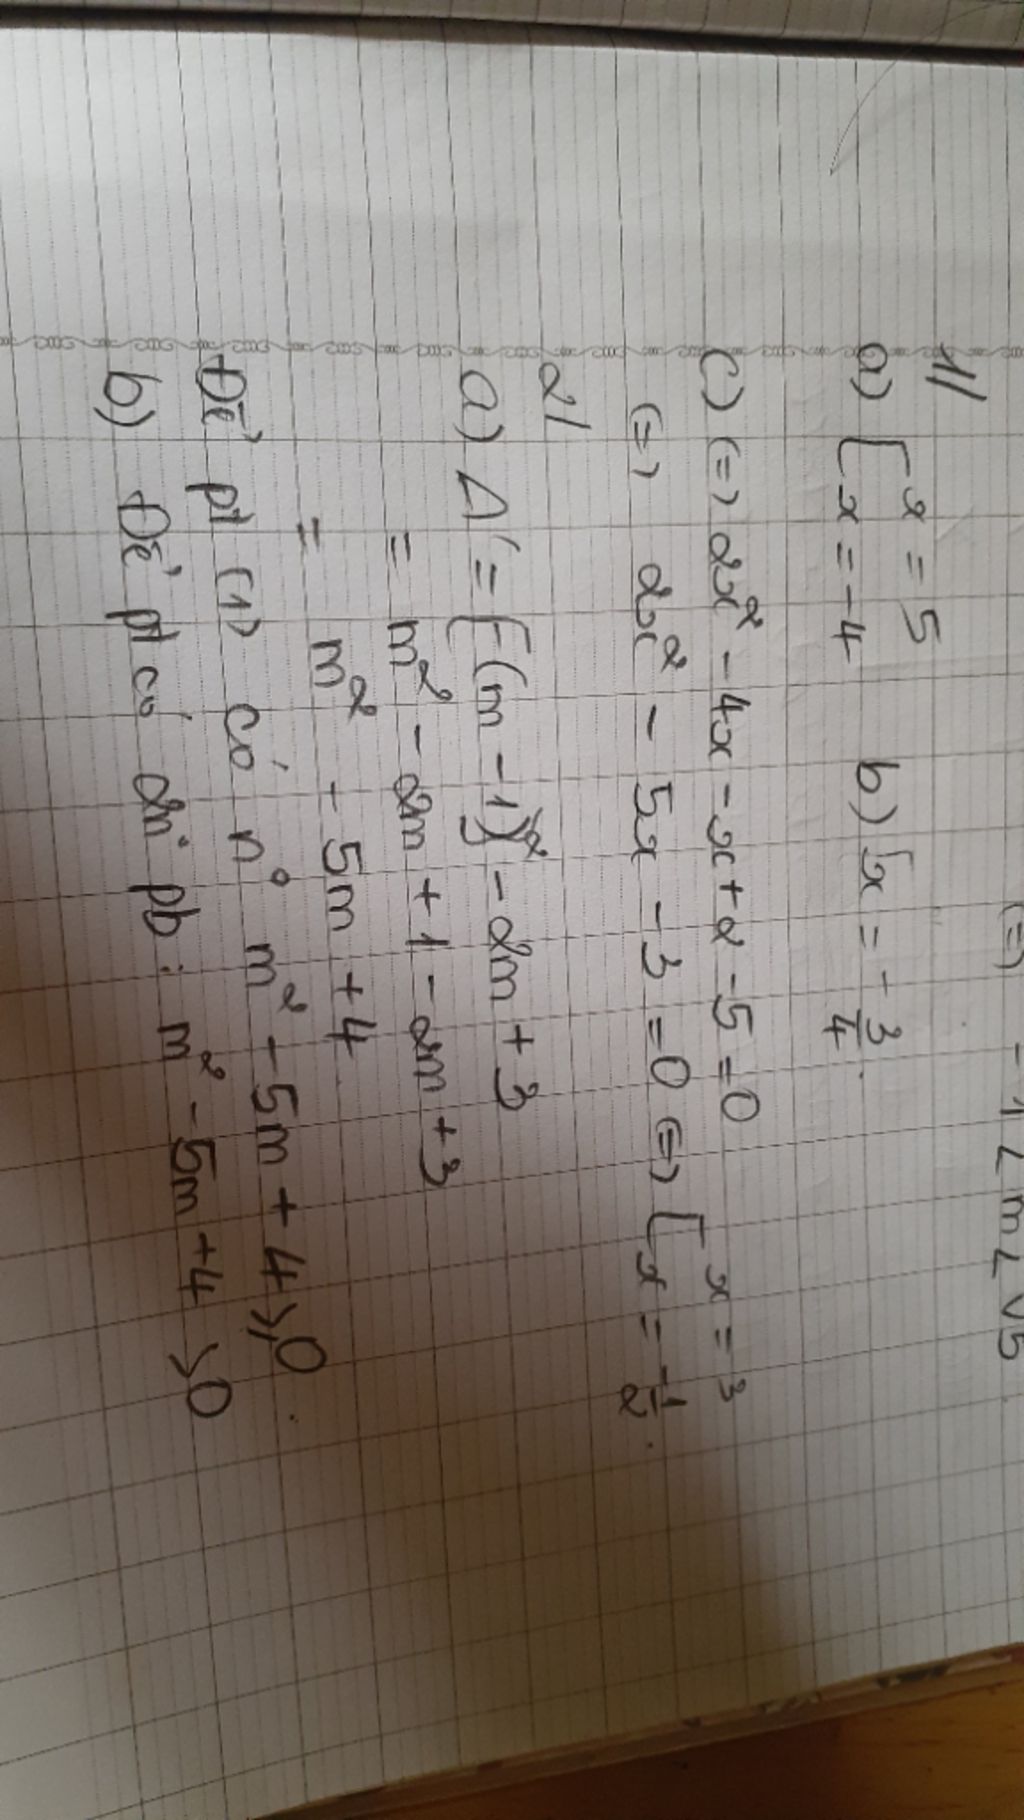 (=) - 1 < m < √5
1/
a) [ x = 5
x = -4
b) [ x = - 3/4.
c) (=) 2x² - 4x - x + 2 - 5 = 0
(=) 2x² - 5x - 3 = 0 (=) [ x = 3
x = -1/2.
2/
a) Δ' = [-(m - 1)]² - 2m + 3
= m² - 2m + 1 - 2m + 3
= m² - 5m + 4
Để pt (1) có n° m² - 5m + 4 ≥ 0
b) Để pt có 2n° pb : m² - 5m + 4 > 0